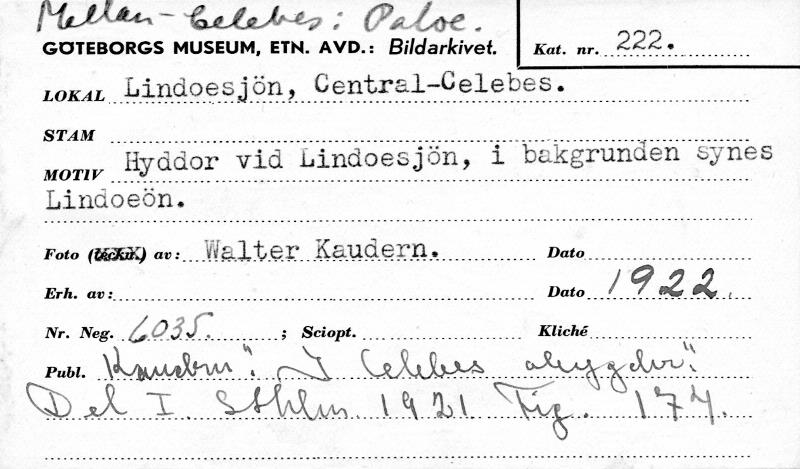 Mellan-Celebes: Paloe.
GÖTEBORGS MUSEUM, ETN. AVD.: Bildarkivet. Kat. nr. 222.
LOKAL Lindoesjön, Central-Celebes.
STAM
MOTIV Hyddor vid Lindoesjön, i bakgrunden synes
Lindoeön.
Foto (teckn.) av: Walter Kaudern. Dato
Erh. av: Dato 1922.
Nr. Neg. 6035. ; Sciopt. Kliché
Publ. Kaudern: "I Celebes obygder"
Del I. Sthlm 1921 Fig. 174.